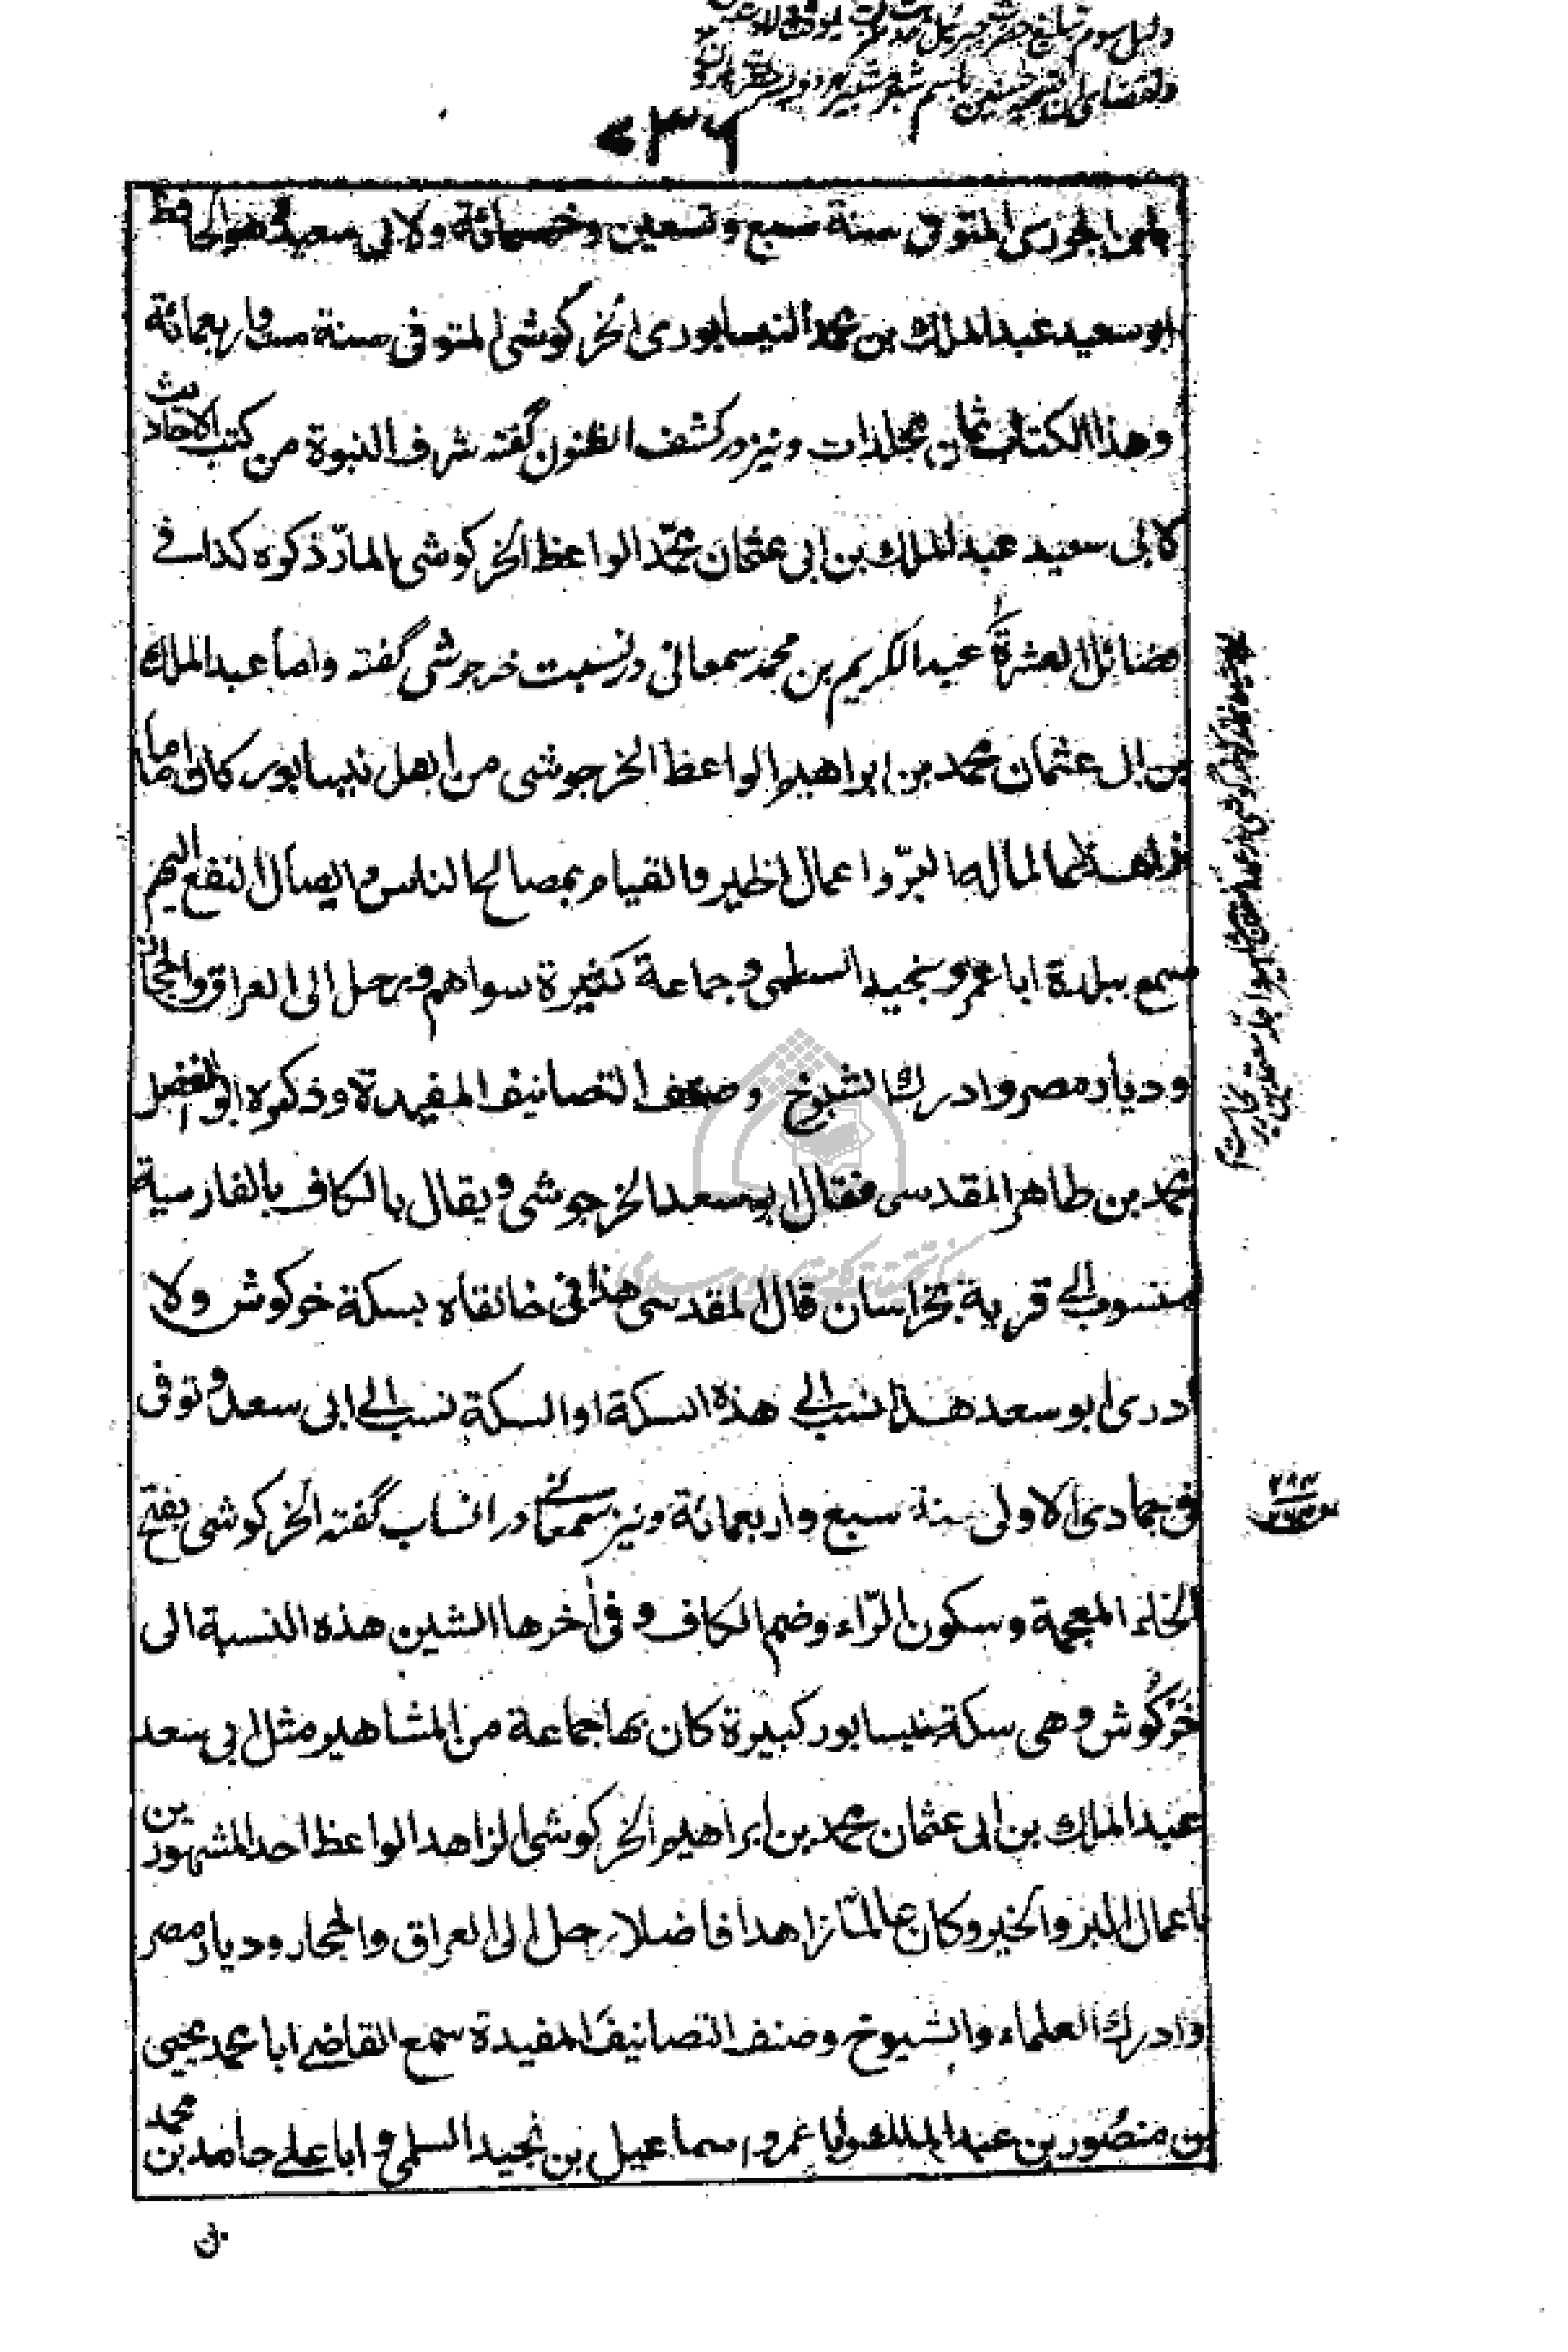 دلیل سوم تبلیغ حضرت جبرئیل
۳۶
الجوزی المتوفی سنة سبع وتسعین وخمسمائة ولابی سعید وهو الحافظ
ابو سعید عبد الملك بن محمد النیسابوری الخرکوشی المتوفی سنة ست واربعمائة
وهذا الکتاب ثمان مجلدات ونیز در کشف الظنون گفته شرف النبوة من کتب الاحادیث
لابی سعید عبد الملك بن ابی عثمان محمد الواعظ الخرکوشی المارّ ذکره کذا فی
فضائل العشرة عبد الکریم بن محمد سمعانی در نسبت خرجوشی گفته واما عبد الملك
بن ابی عثمان محمد بن ابراهیم الواعظ الخرجوشی من اهل نیسابور کان اماما
زاهدا عالما له البرّ واعمال الخیر والقیام بمصالح الناس وایصال النفع الیهم
سمع ببلدة ابا عمرو بن نجید السلمی وجماعة کثیرة سواهم ورحل الی العراق والحجاز
ودیار مصر وادرك الشیوخ وصنف التصانیف المفیدة وذکره ابو الفضل
محمد بن طاهر المقدسی فقال ابو سعد الخرجوشی ویقال بالکاف بالفارسیة
منسوب الی قریة بخراسان قال المقدسی هذا فی خانقاه بسکة خرکوش ولا
ادری ابو سعد هذا نسب الی هذه السکة او السکة نسب الی ابی سعد وتوفی
فی جمادی الاولی سنة سبع واربعمائة ونیز سمعانی در انساب گفته الخرکوشی بفتح
الخاء المعجمة وسکون الرّاء وضم الکاف وفی أخرها الشین هذه النسبة الی
خَرْکُوش وهی سکة بنیسابور کبیرة کان بها جماعة من المشاهیر مثل ابی سعد
عبد الملك بن ابی عثمان محمد بن ابراهیم الخرکوشی الزاهد الواعظ احد المشهورین
باعمال البر والخیر وکان عالما زاهدا فاضلا رحل الی العراق والحجاز ودیار مصر
وادرك العلماء والشیوخ وصنف التصانیف المفیدة سمع القاضی ابا محمد یحیی
بن منصور بن عبد الملك وابا عمرو اسماعیل بن نجید السلمی وابا علی حامد بن محمد
بن